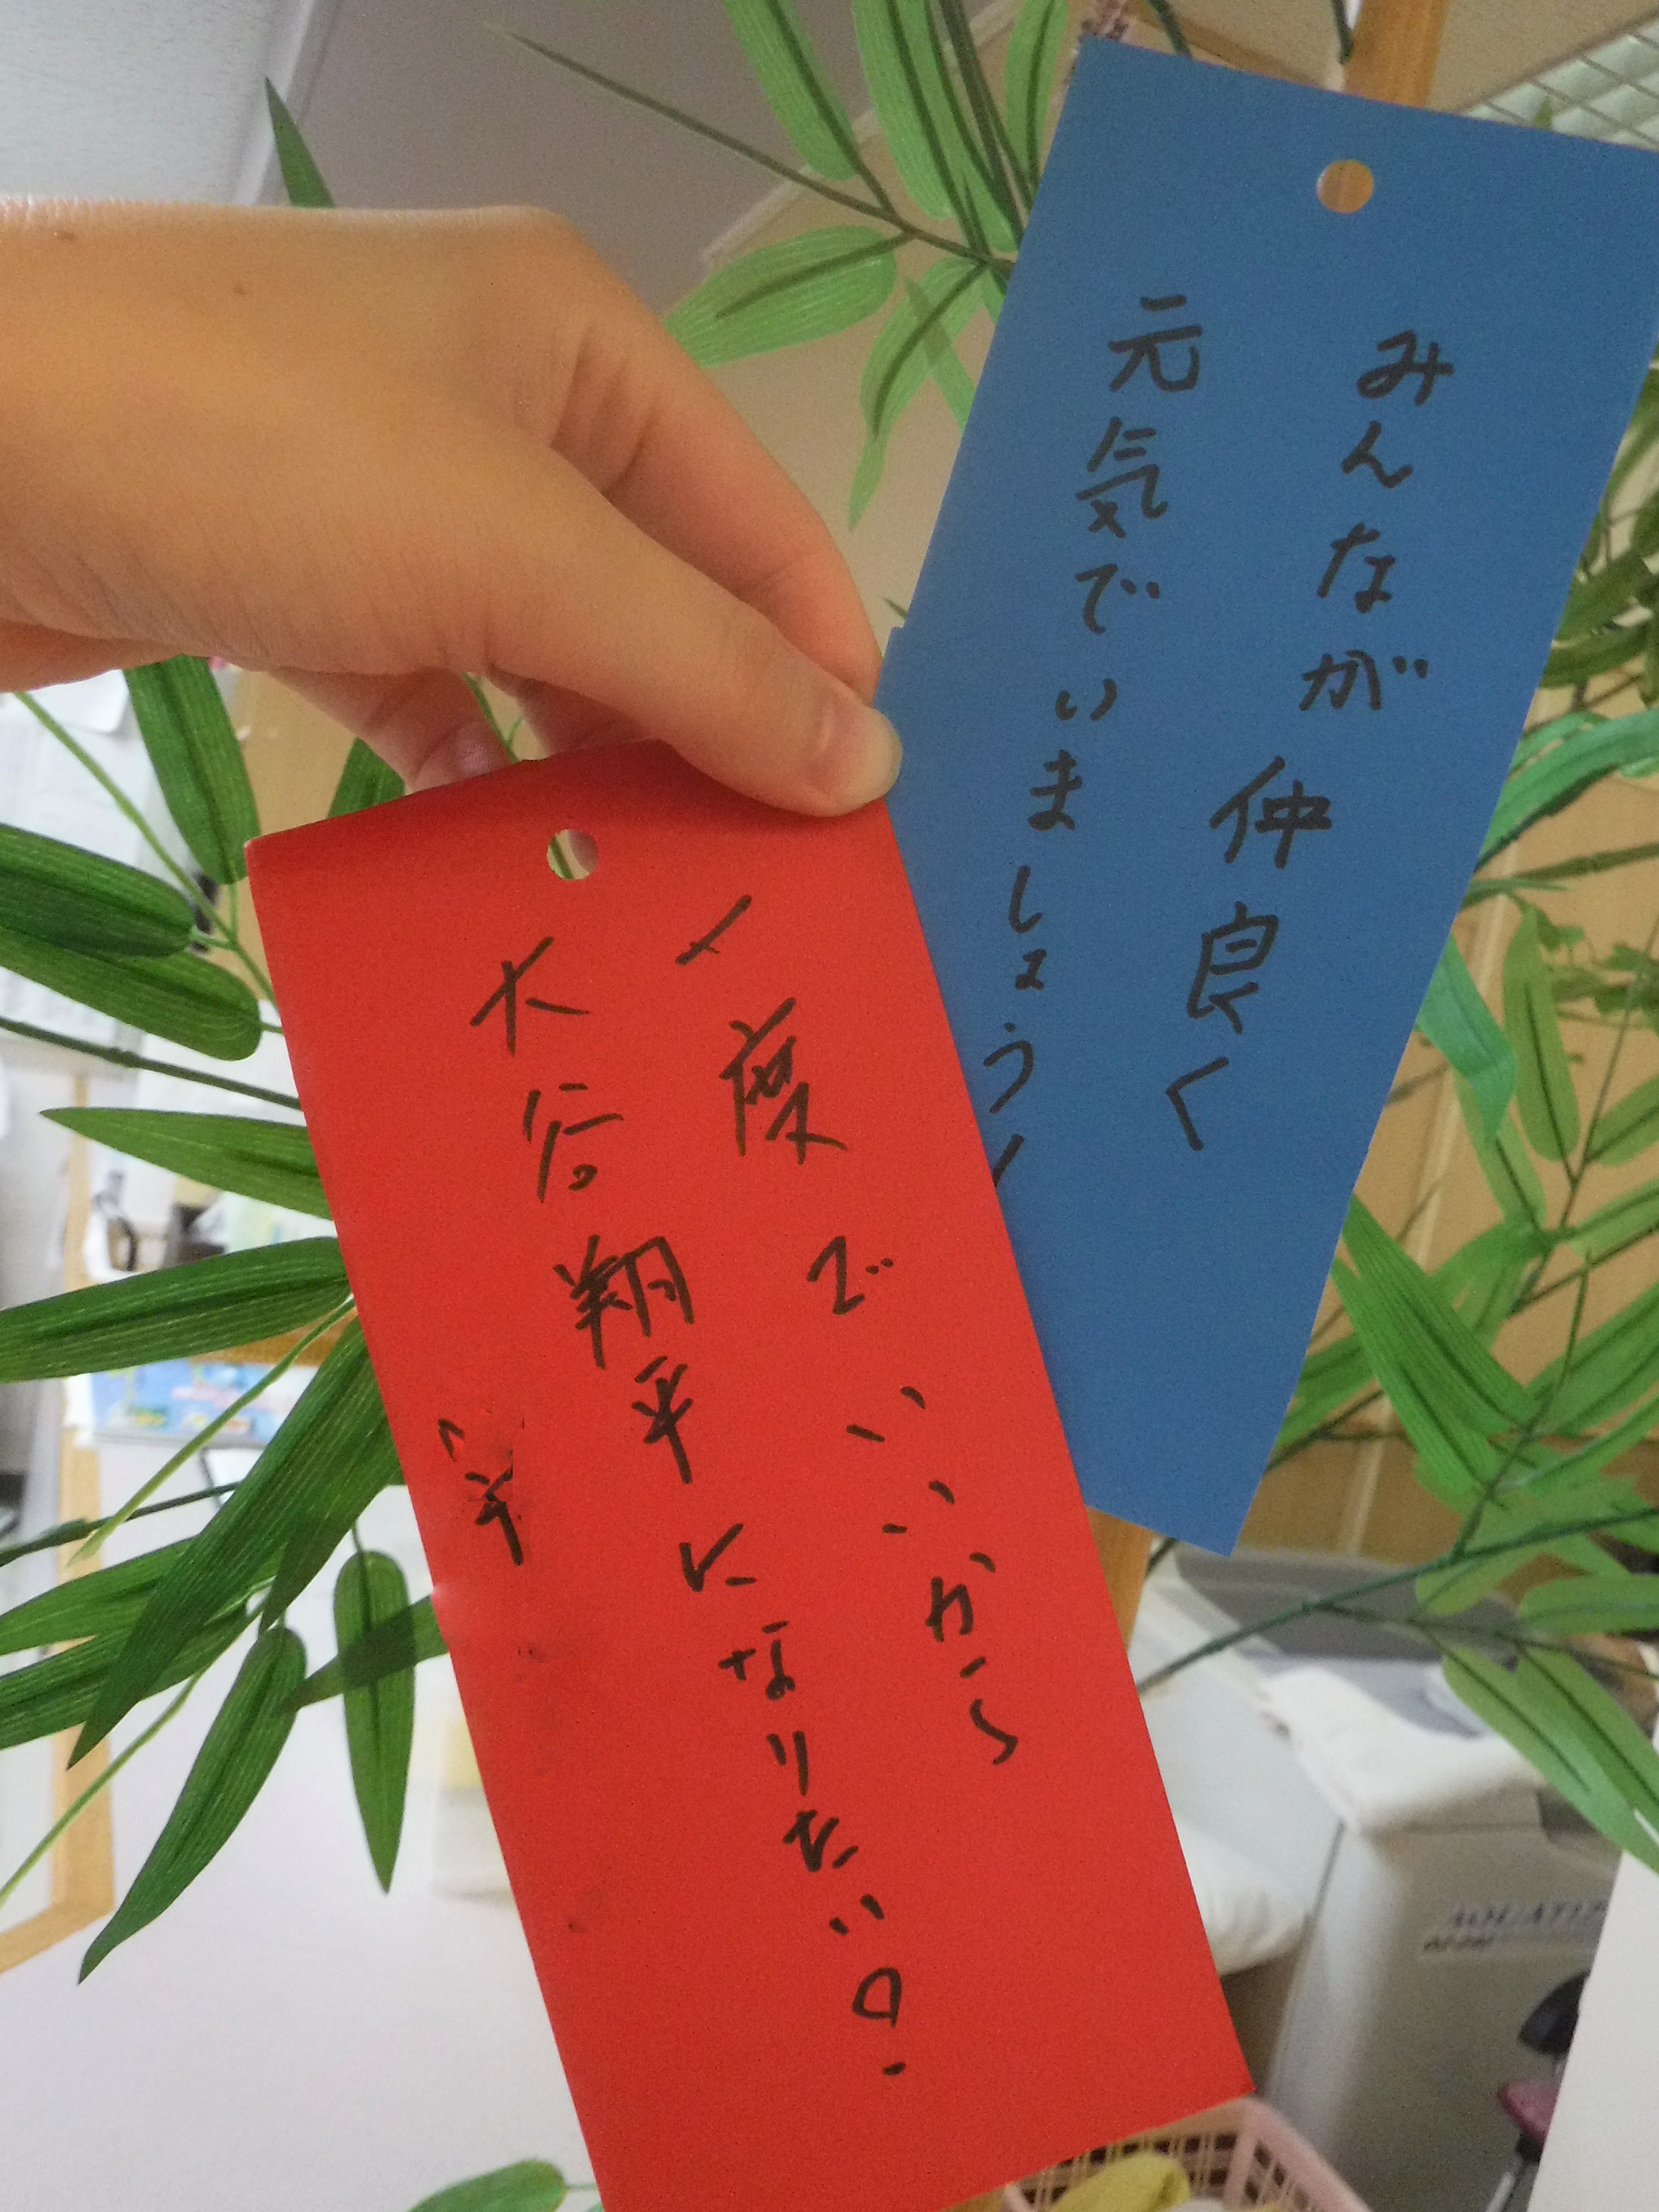 みんなが仲良く
元気でいましょう!
一度でいいから
大谷翔平になりたい!